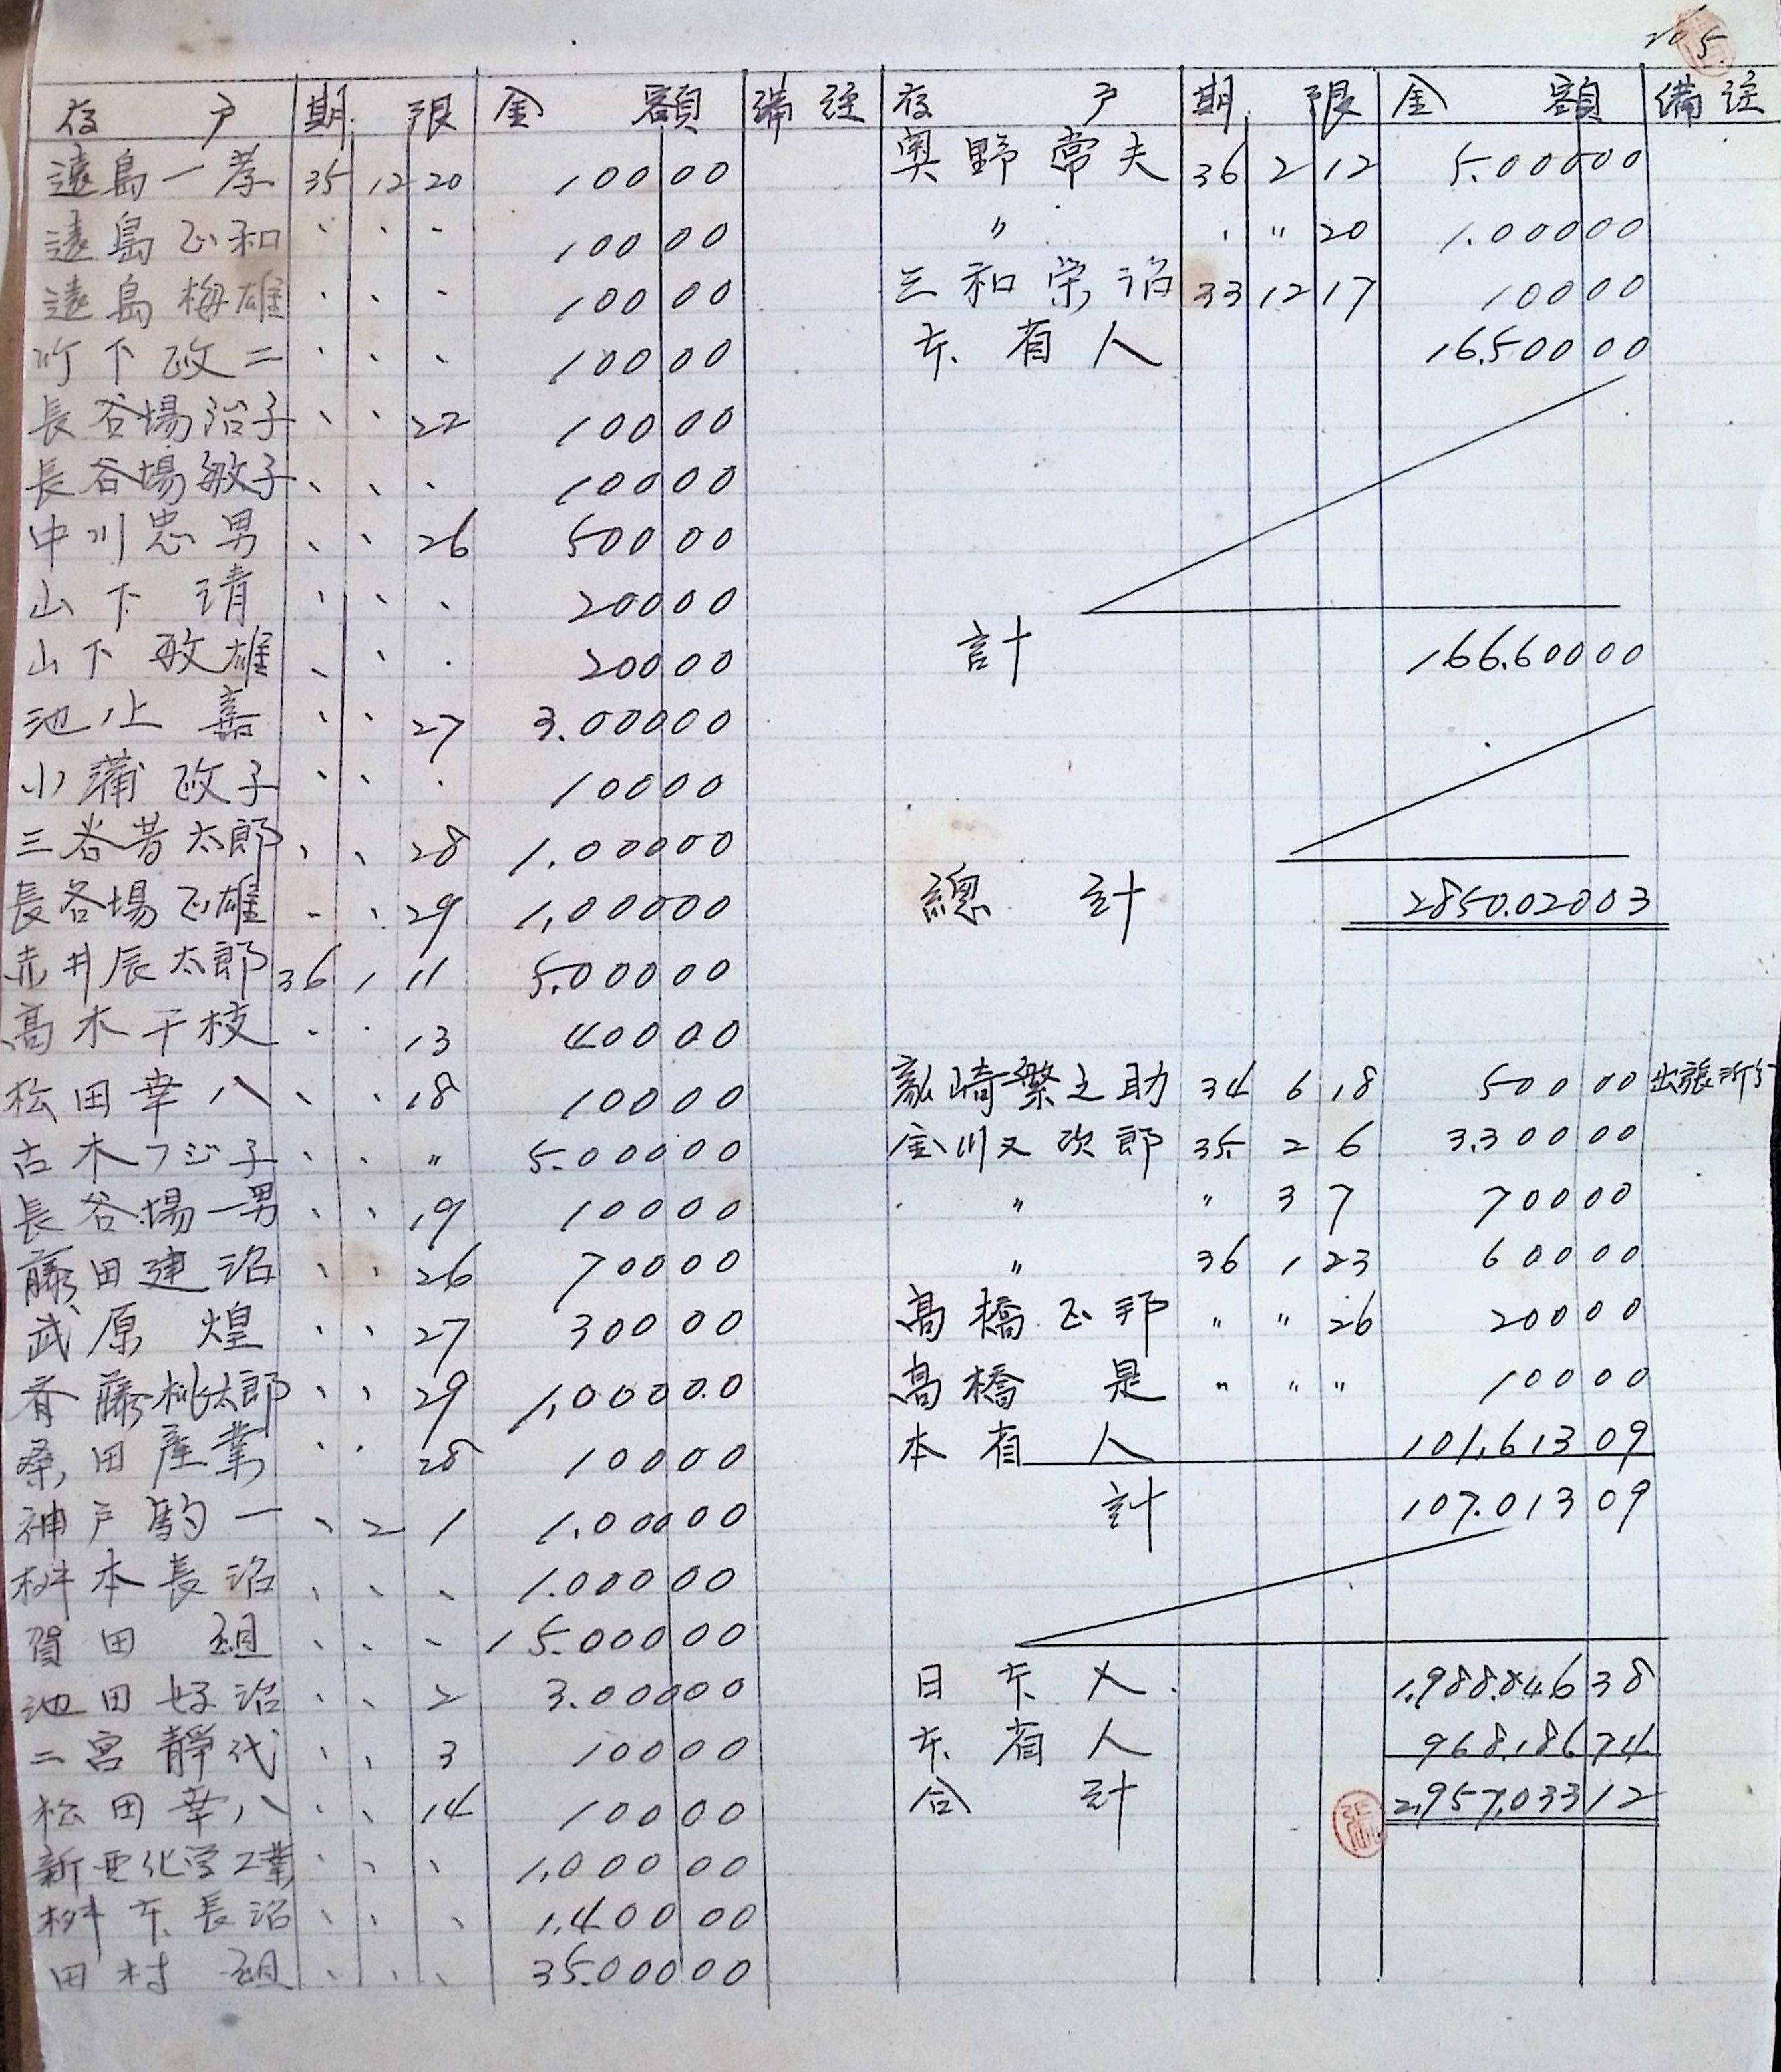 No 5.
存戶 期限 金額 備註
遠島一孝 35 12 20 10000
遠島正和 、 、 - 10000
遠島梅雄 、 、 - 10000
竹下政二 、 、 、 10000
長谷場治子 、 、 22 10000
長谷場敏子 、 、 、 10000
中川忠男 、 、 26 50000
山下清 、 、 、 20000
山下敏雄 、 、 . 20000
池上嘉 、 、 27 3.00000
小蒲政子 、 、 . 10000
三谷昔太郎 、 、 28 1.00000
長谷場正雄 - 、 29 1,00000
赤井辰太郎 36 1 11 5.00000
髙木千枝 、 、 13 40000
松田幸八 、 、 18 10000
古木フジ子 、 、 〃 5.00000
長谷場一男 、 、 19 10000
藤田建治 、 、 26 70000
武原煌 、 、 27 30000
斉藤桃太郎 、 、 29 1,00000
桑田産業 、 、 28 10000
神戶駒一 、 2 1 1.00000
桝本長治 、 、 、 1.00000
賀田組 、 、 - 15.00000
池田好治 、 、 2 3.00000
二宮靜代 、 、 3 10000
松田幸八 、 、 14 10000
新亜化学工業 、 、 、 1,00000
桝本長治 、 、 、 1,40000
田村組 、 、 、 35.00000
存戶 期限 金額 備註
奥野常夫 36 2 12 5.00000
〃 、 〃 20 1.00000
三和栄治 33 12 17 10000
本省人 16.50000
計 166.60000
總計 2850.02003
崎繁之助 34 6 18 50000 出張所分
金川又次郎 35 2 6 3.30000
〃 〃 3 7 70000
〃 36 1 23 60000
髙橋正邦 〃 〃 26 20000
髙橋是 〃 〃 〃 10000
本省人 101,61309
計 107.01309
日本人 1,988.84638
本省人 968,18674
合計 2,957,03312